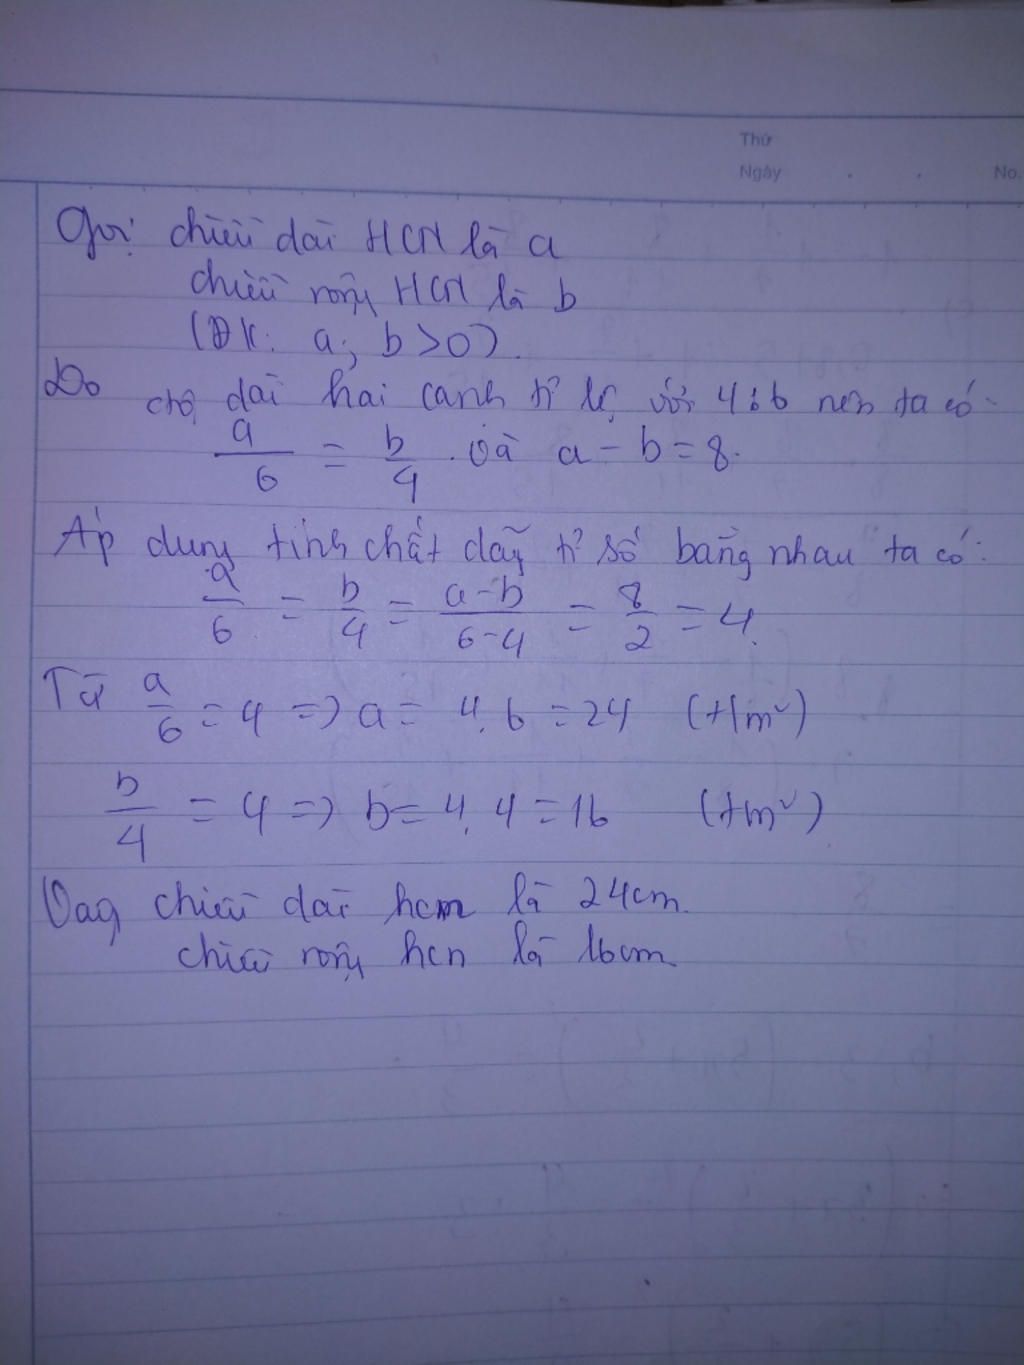 Thứ
Ngày . . No.
Gọi chiều dài HCN là a
chiều rộng HCN là b
(ĐK: a; b > 0).
Do độ dài hai cạnh tỉ lệ với 4; 6 nên ta có
a/6 = b/4 . và a - b = 8.
Áp dụng tính chất dãy tỉ số bằng nhau ta có:
a/6 = b/4 = a-b/6-4 = 8/2 = 4.
Từ a/6 = 4 => a = 4.6 = 24 (t/m²)
b/4 = 4 => b = 4.4 = 16 (t/m²)
Vậy chiều dài hcn là 24cm.
chiều rộng hcn là 16cm